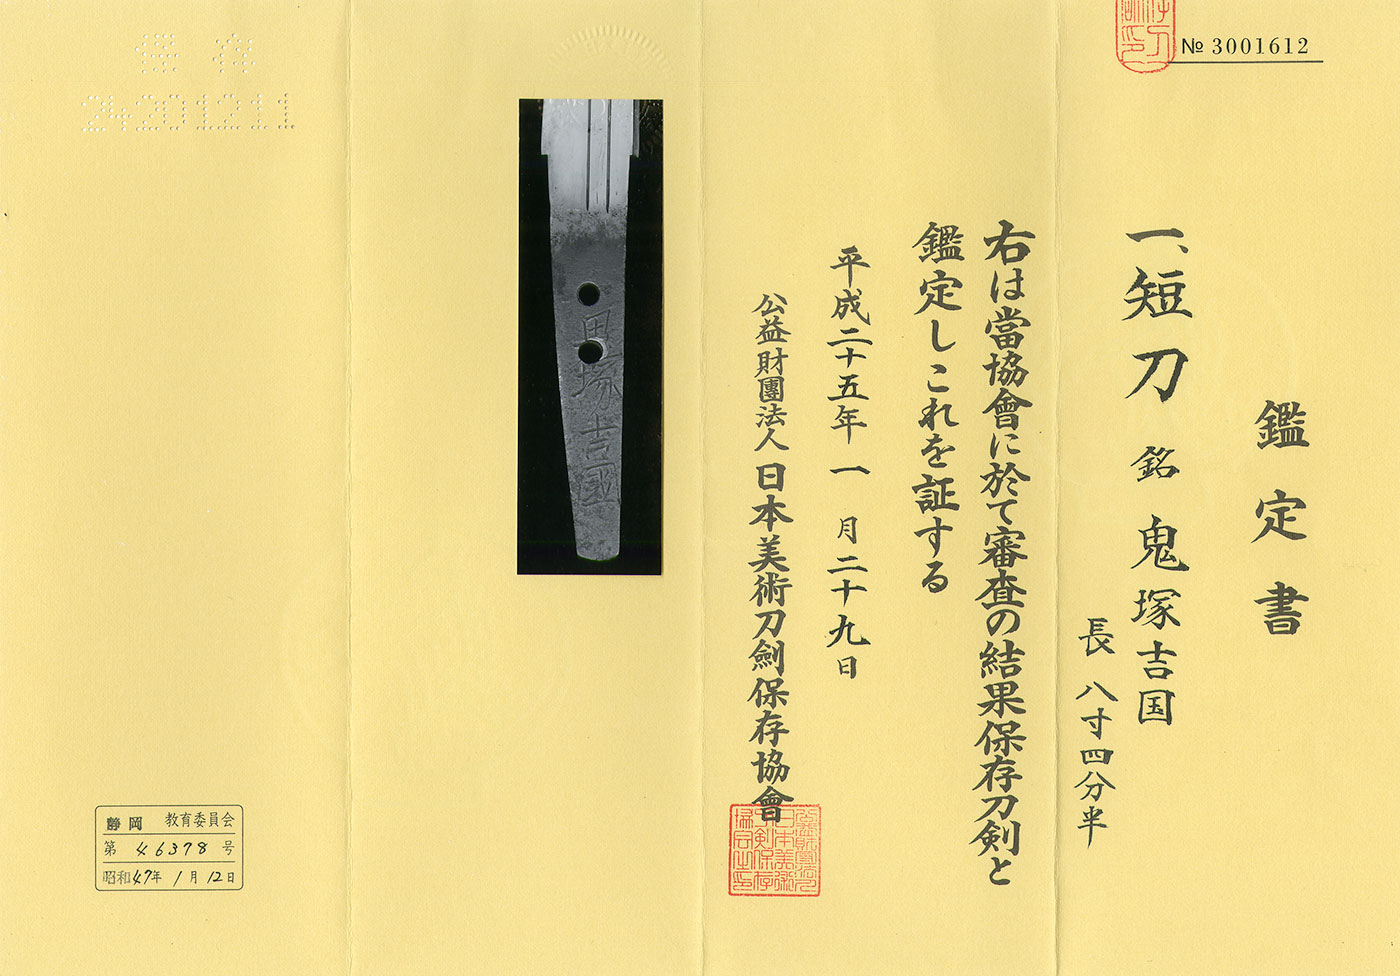 № 3001612
鑑定書
一、短刀 銘 鬼塚吉国
長 八寸四分半
右は當協會に於て審査の結果保存刀剣と
鑑定しこれを証する
平成二十五年 一 月二十九日
公益財團法人 日本美術刀劍保存協會
鬼塚吉國
保存
24201211
静岡 教育委員会
第 46378 号
昭和47年 1月 12日